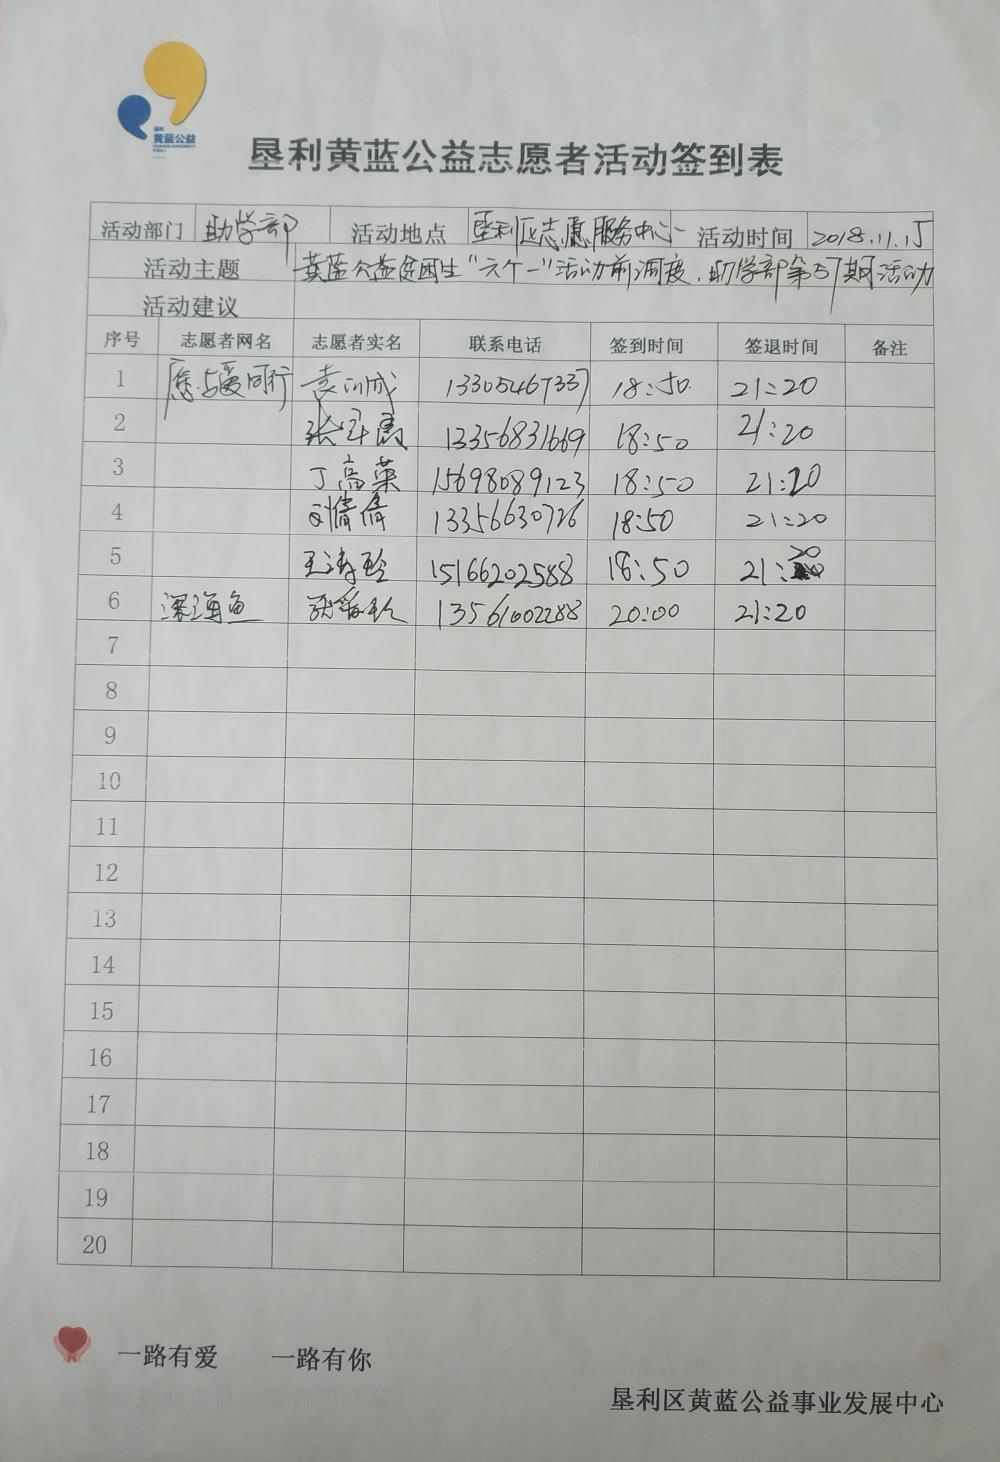 黄蓝公益
垦利黄蓝公益志愿者活动签到表
活动部门 助学部 活动地点 垦利区志愿服务中心 活动时间 2018.11.15
活动主题 黄蓝公益贫困生“六个一”活动前调度,助学部第57期活动
活动建议
序号 志愿者网名 志愿者实名 联系电话 签到时间 签退时间 备注
1 与爱同行 13305467337 18:50 21:20
2 13356831669 18:50 21:20
3 丁高菜 15698089123 18:50 21:20
4 刘倩倩 13356630726 18:50 21:20
5 15166202588 18:50 21:20
6 深海鱼 13561002288 20:00 21:20
7
8
9
10
11
12
13
14
15
16
17
18
19
20
一路有爱 一路有你
垦利区黄蓝公益事业发展中心